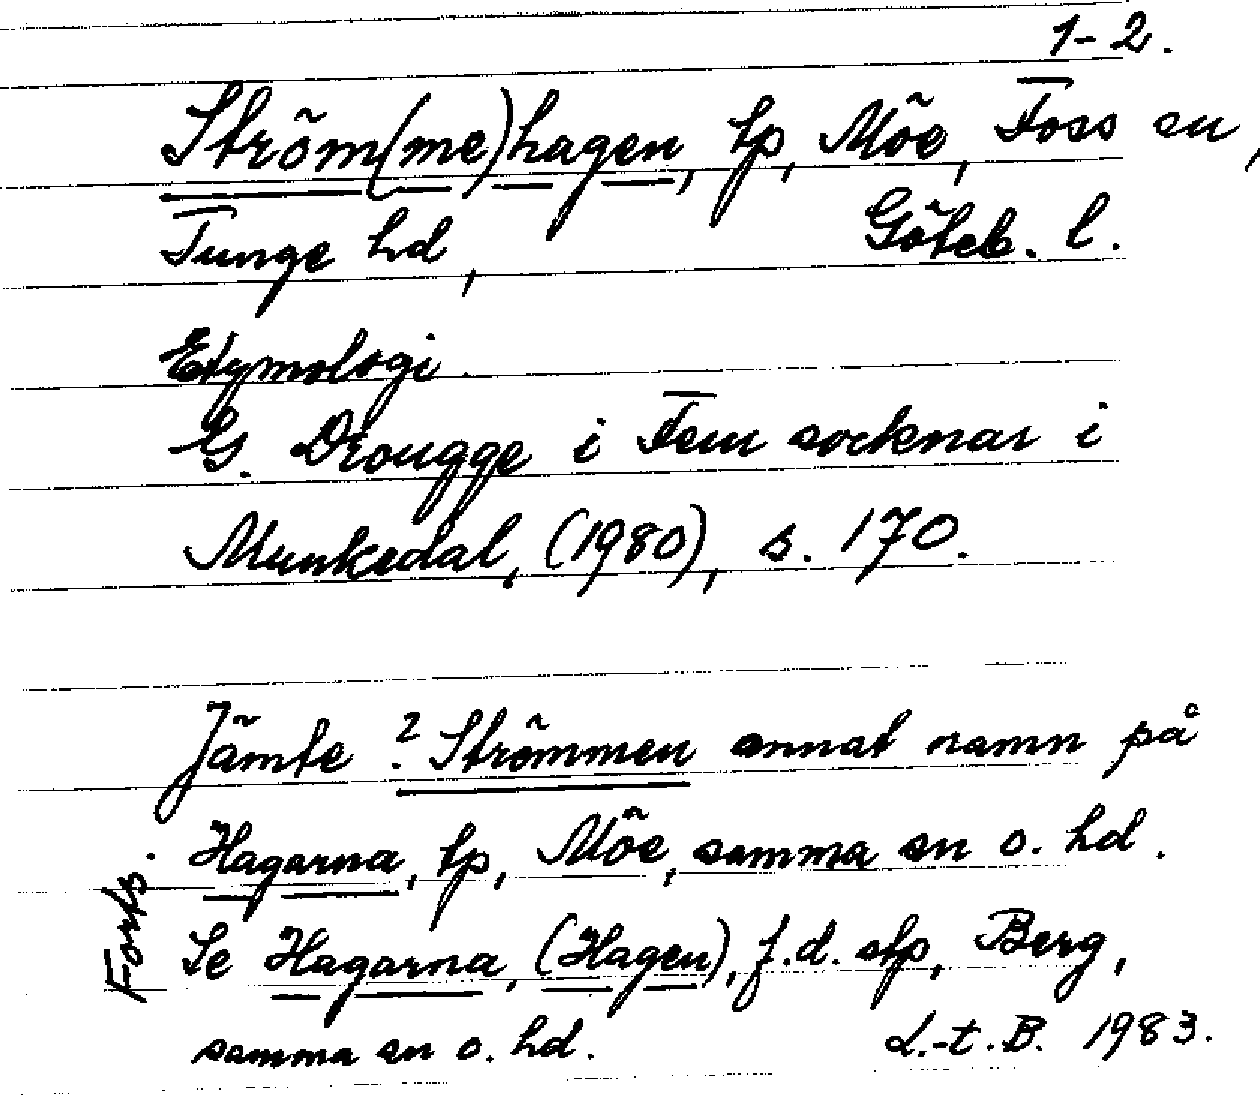 1-2.
Ström(me)hagen, tp, Möe, Foss sn,
Tunge hd, Göteb. l.
Etymologi.
G. Drougge i Fem socknar i
Munkedal, (1980), s. 170.
Jämte ? Strömmen annat namn på
Hagarna, tp, Möe, samma sn o. hd.
Se Hagarna, (Hagen), f.d. stp, Berg,
samma sn o. hd. L.-t.B. 1983.
Forts.